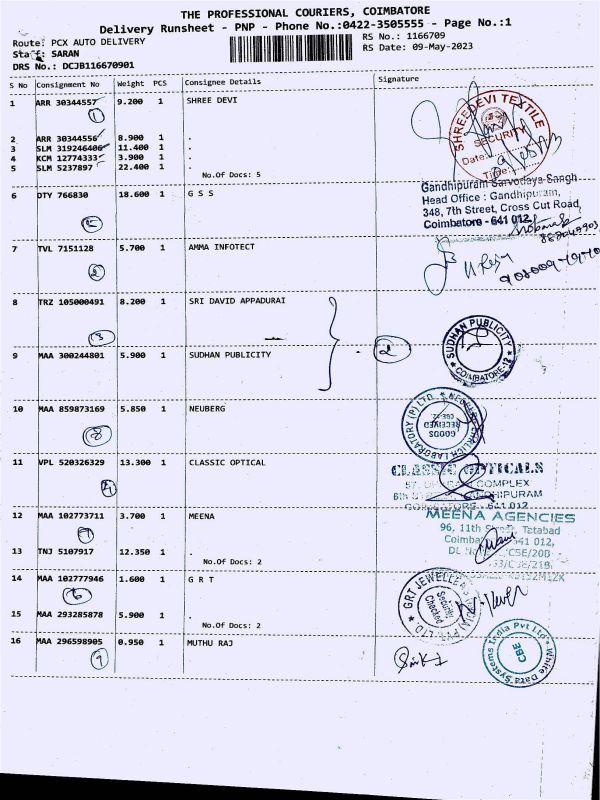 THE PROFESSIONAL COURIERS, COIMBATORE
Delivery Runsheet - PNP - Phone No.:0422-3505555 - Page No.:1
Route: PCX AUTO DELIVERY
RS No.: 1166709
Staff: SARAN
RS Date: 09-May-2023
DRS No.: DCJB116670901
S No Consignment No Weight PCS Consignee Details Signature
1 ARR 30344557 9.200 1 SHREE DEVI
1
SHREEDEVI TEXTILE
SECURITY
Date:
Time:
2 ARR 30344556 8.900 1 .
3 SLM 319246406 11.400 1 .
4 KCM 12774333 3.900 1 .
5 SLM 5237897 22.400 1 .
No.Of Docs: 5
6 DTY 766830 18.600 1 G S S
Gandhipuram Sarvodaya Sangh
Head Office : Gandhipuram,
348, 7th Street, Cross Cut Road,
Coimbatore - 641 012
7 TVL 7151128 5.700 1 AMMA INFOTECT
8 TRZ 105000491 8.200 1 SRI DAVID APPADURAI
3
2
SUDHAN PUBLICITY
COIMBATORE-12
9 MAA 300244801 5.900 1 SUDHAN PUBLICITY
10 MAA 859873169 5.850 1 NEUBERG
8
GOODS
RECEIVED
CBE-12
LABORATORY (P) LTD.
11 VPL 520326329 13.300 1 CLASSIC OPTICAL
CLASSIC OPTICALS
COMPLEX
GANDHIPURAM
12 MAA 102773711 3.700 1 MEENA
MEENA AGENCIES
96, 11th Street, Tatabad
Coimbatore 641 012,
13 TNJ 5107917 12.350 1 .
No.Of Docs: 2
14 MAA 102777946 1.600 1 G R T
6
GRT JEWELLERS INDIA PVT. LTD.
Security
Checked
15 MAA 293285878 5.900 1 .
No.Of Docs: 2
16 MAA 296598905 0.950 1 MUTHU RAJ
9
White Data Systems India Pvt Ltd
CBE